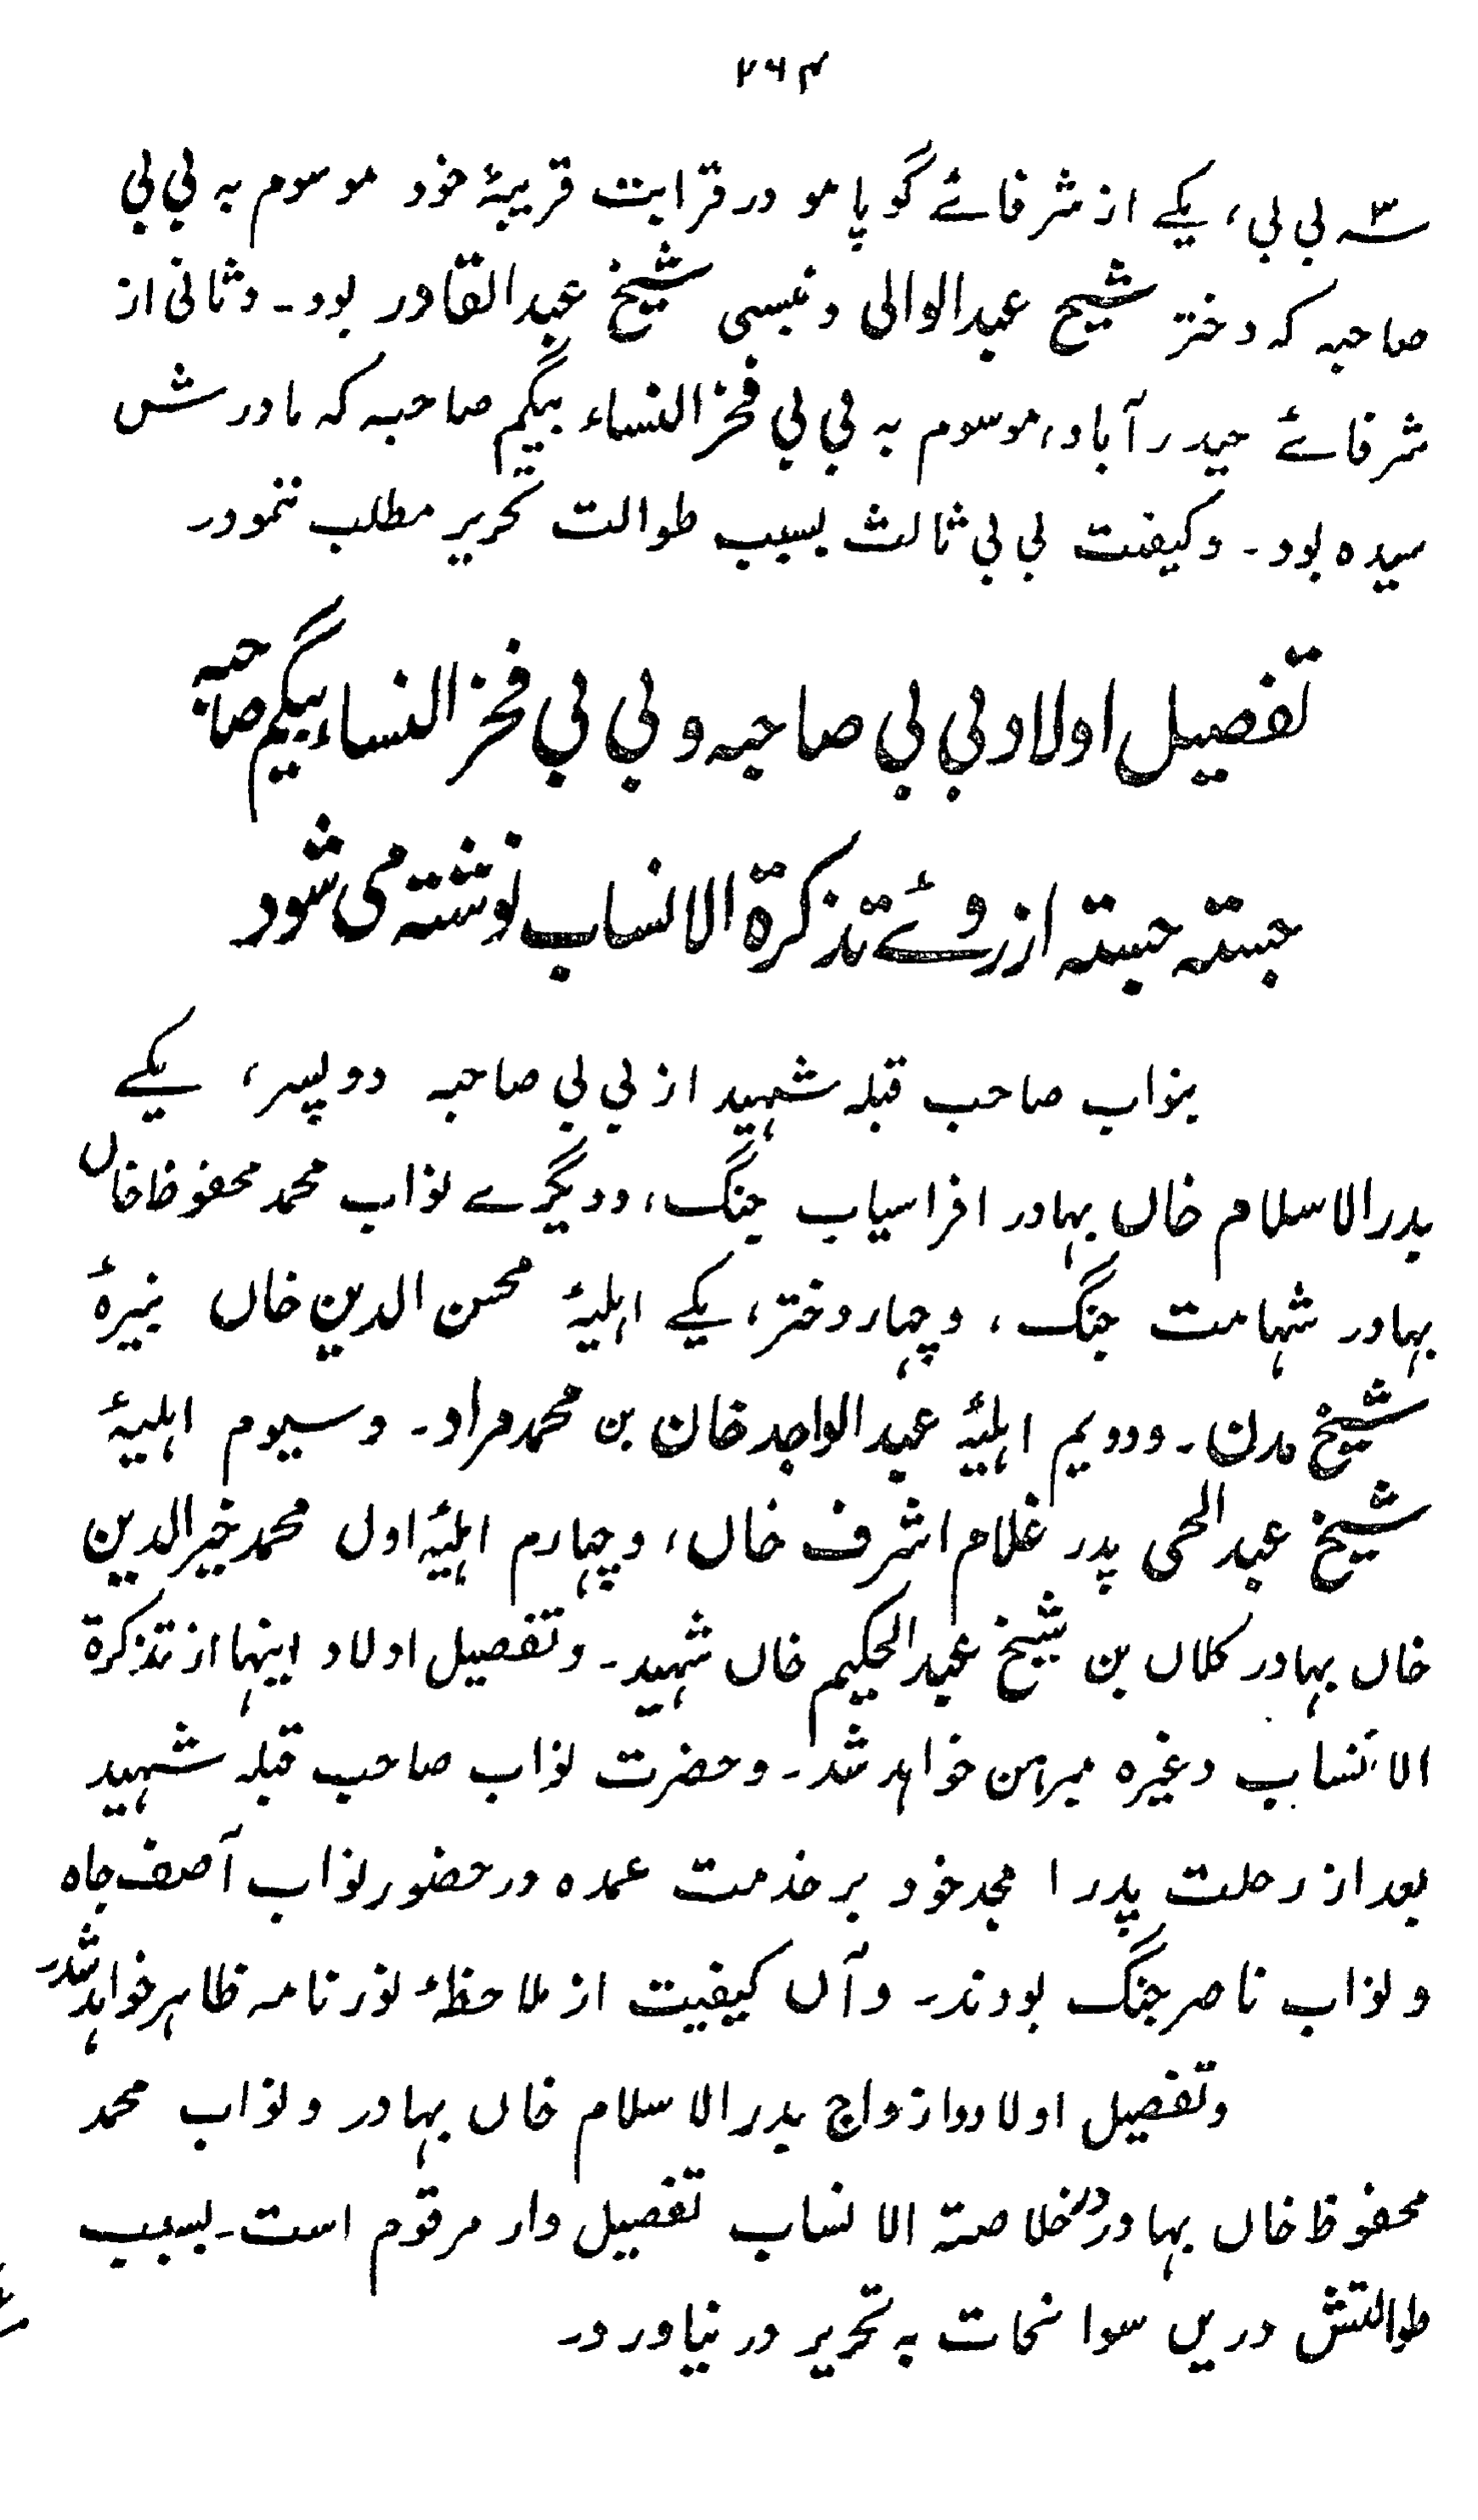 ۲۶۴
سہ بی بی، یکے از شرفائے گوپامو در قرابت قریبۂ خود موسوم بہ بی بی
صاحبہ کہ دختر شیخ عبدالوالی و نبسی شیخ عبدالقادر بود۔ و ثانی از
شرفائے حیدرآباد، موسوم بہ بی بی فخرالنساء بیگم صاحبہ کہ مادرش
سیدہ بود۔ و کیفیت بی بی ثالث بسبب طوالت تحریر مطلب ننمود۔
تفصیل اولاد بی بی صاحبہ و بی بی فخرالنساء بیگم صاحبہ
جستہ جستہ از روئے تذکرۃ الانساب نوشتہ می شود
بنواب صاحب قبلہ شہید از بی بی صاحبہ دو پسر، یکے
بدرالاسلام خاں بہادر افراسیاب جنگ، و دیگرے نواب محمد محفوظ خاں
بہادر شہامت جنگ، و چہار دختر، یکے اہلیۂ محسن الدین خاں نبیرۂ
شیخ مدن۔ و دویم اہلیۂ عبدالواجد خان بن محمد مراد۔ و سیوم اہلیۂ
شیخ عبدالحی پدر غلام اشرف خاں، و چہارم اہلیۂ اول محمد خیرالدین
خاں بہادر کلاں بن شیخ عبدالحکیم خاں شہید۔ و تفصیل اولاد اینہا از تذکرۃ
الانساب وغیرہ مبرہن خواہد شد۔ و حضرت نواب صاحب قبلہ شہید
بعد از رحلت پدر امجد خود بر خدمت عمدہ در حضور نواب آصف جاہ
و نواب ناصر جنگ بودند۔ و آں کیفیت از ملاحظۂ نور نامہ ظاہر خواہد شد۔
و تفصیل اولاد و ازواج بدرالاسلام خاں بہادر و نواب محمد
محفوظ خاں بہادر در خلاصۃ الانساب تفصیل وار مرقوم است۔ بسبب
طوالتش دریں سوانحات بہ تحریر در نیاورد۔